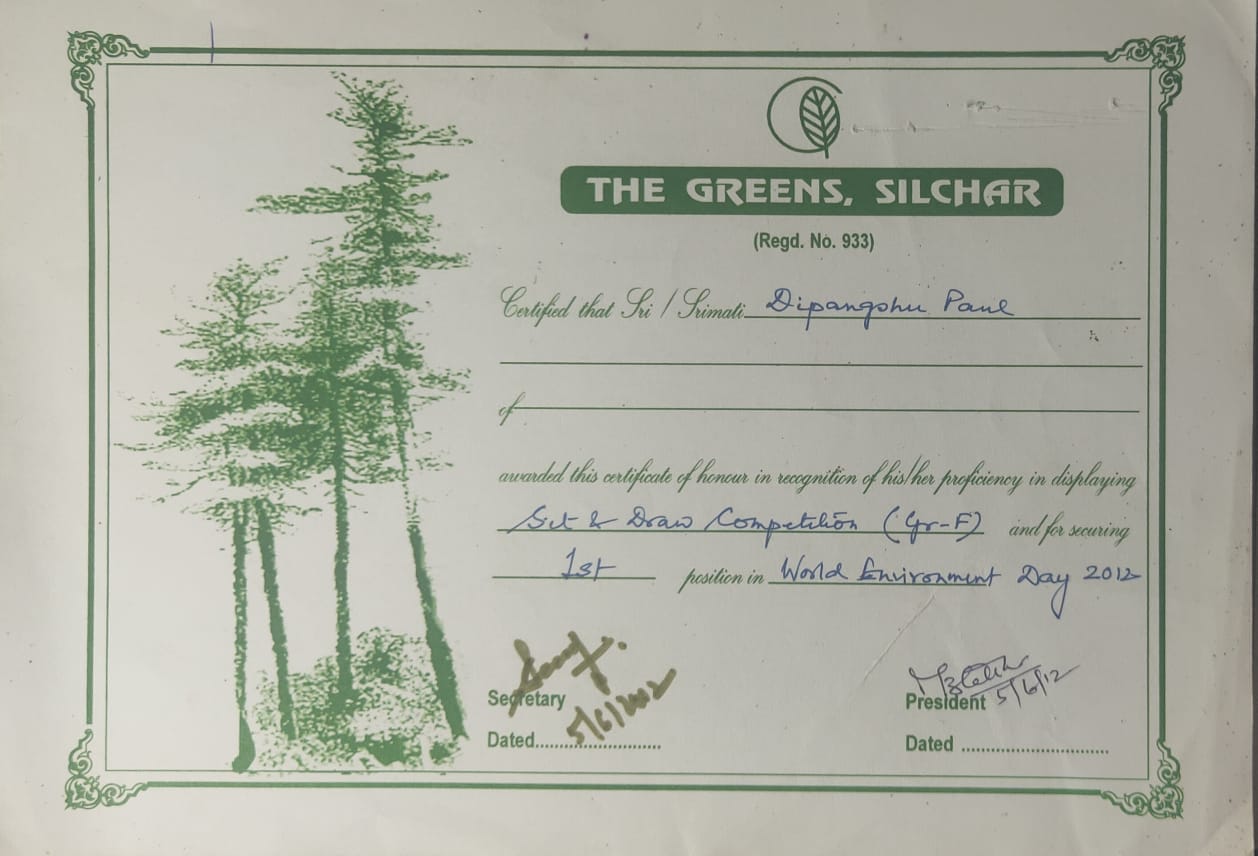 THE GREENS, SILCHAR
(Regd. No. 933)
Certified that Sri / Srimati Dipangshu Paul
of
awarded this certificate of honour in recognition of his/her proficiency in displaying
Sit & Draw Competition (Gr-F) and for securing
1st position in World Environment Day 2012
Secretary 5/6/2012
President 5/6/12
Dated
Dated